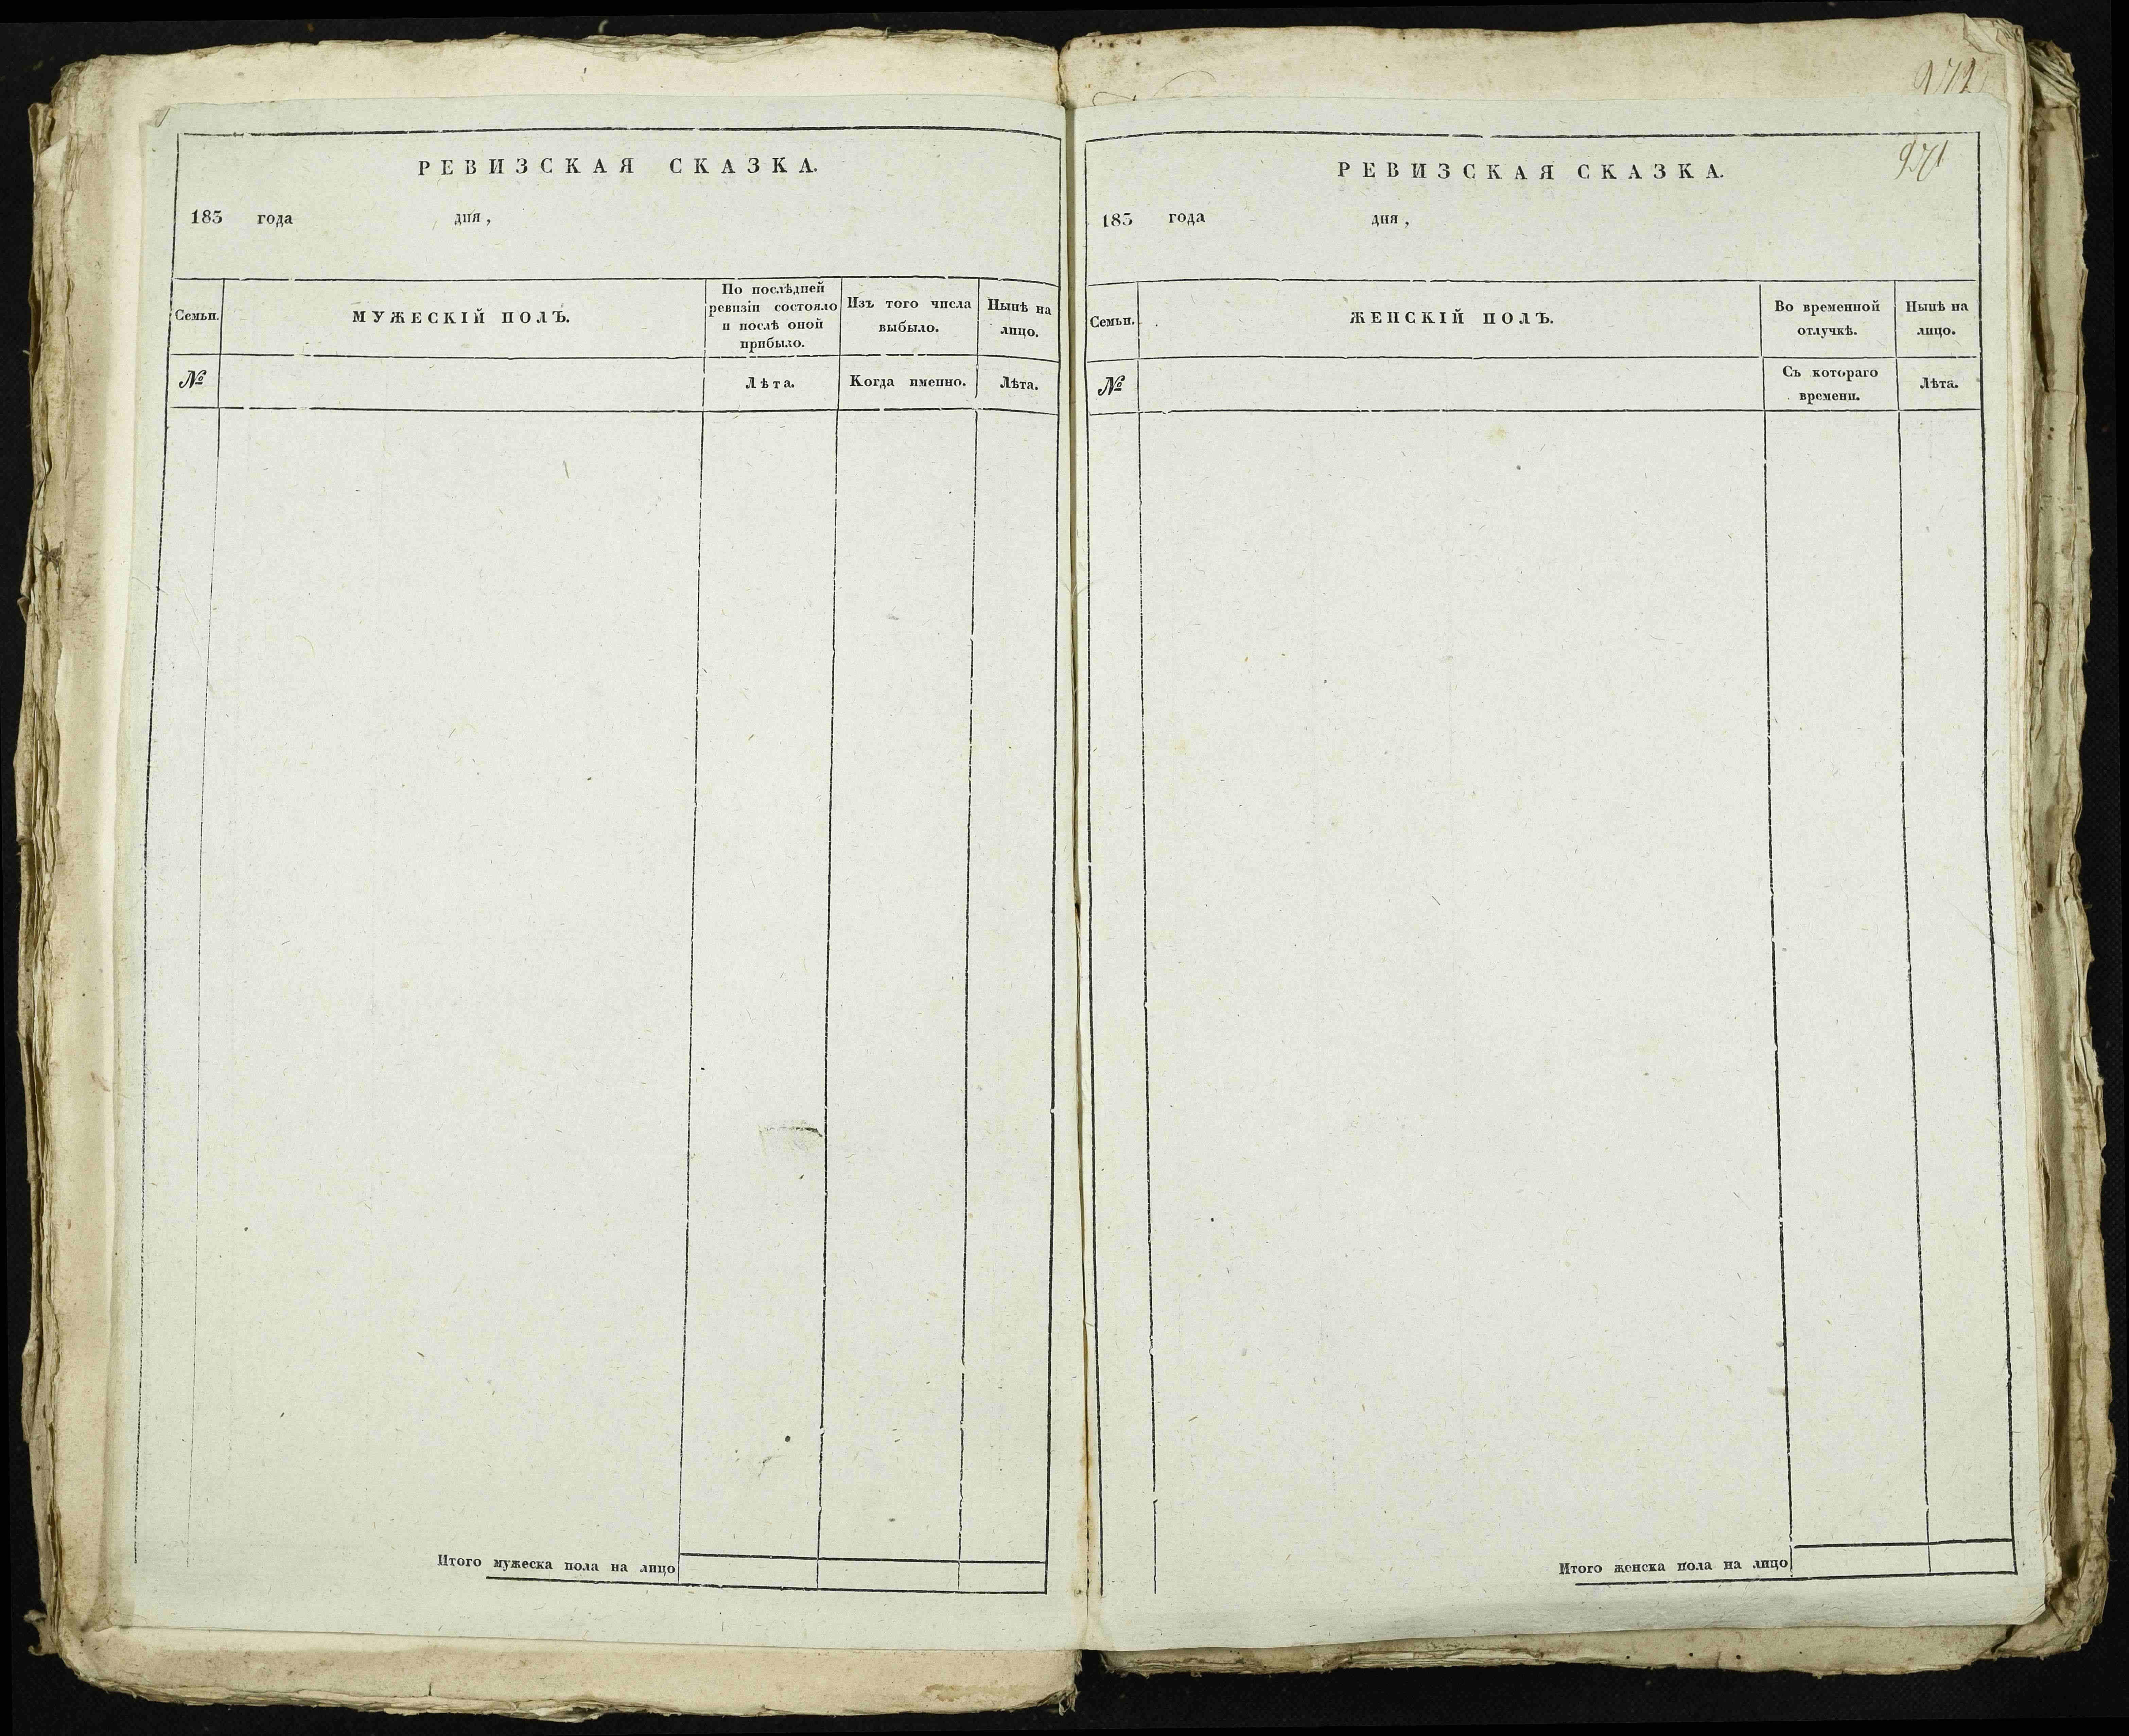 РЕВИЗСКАЯ СКАЗКА.
183 года дня,
Семьи.
МУЖЕСКІЙ ПОЛЪ.
По послѣдней
ревизіи состояло
и послѣ оной
прибыло.
Изъ того числа
выбыло.
Нынѣ на
лицо.
№
Лѣта.
Когда именно.
Лѣта.
Итого мужеска пола на лицо
972
971
РЕВИЗСКАЯ СКАЗКА.
183 года дня,
Семьи.
ЖЕНСКІЙ ПОЛЪ.
Во временной
отлучкѣ.
Нынѣ на
лицо.
№
Съ котораго
времени.
Лѣта.
Итого женска пола на лицо